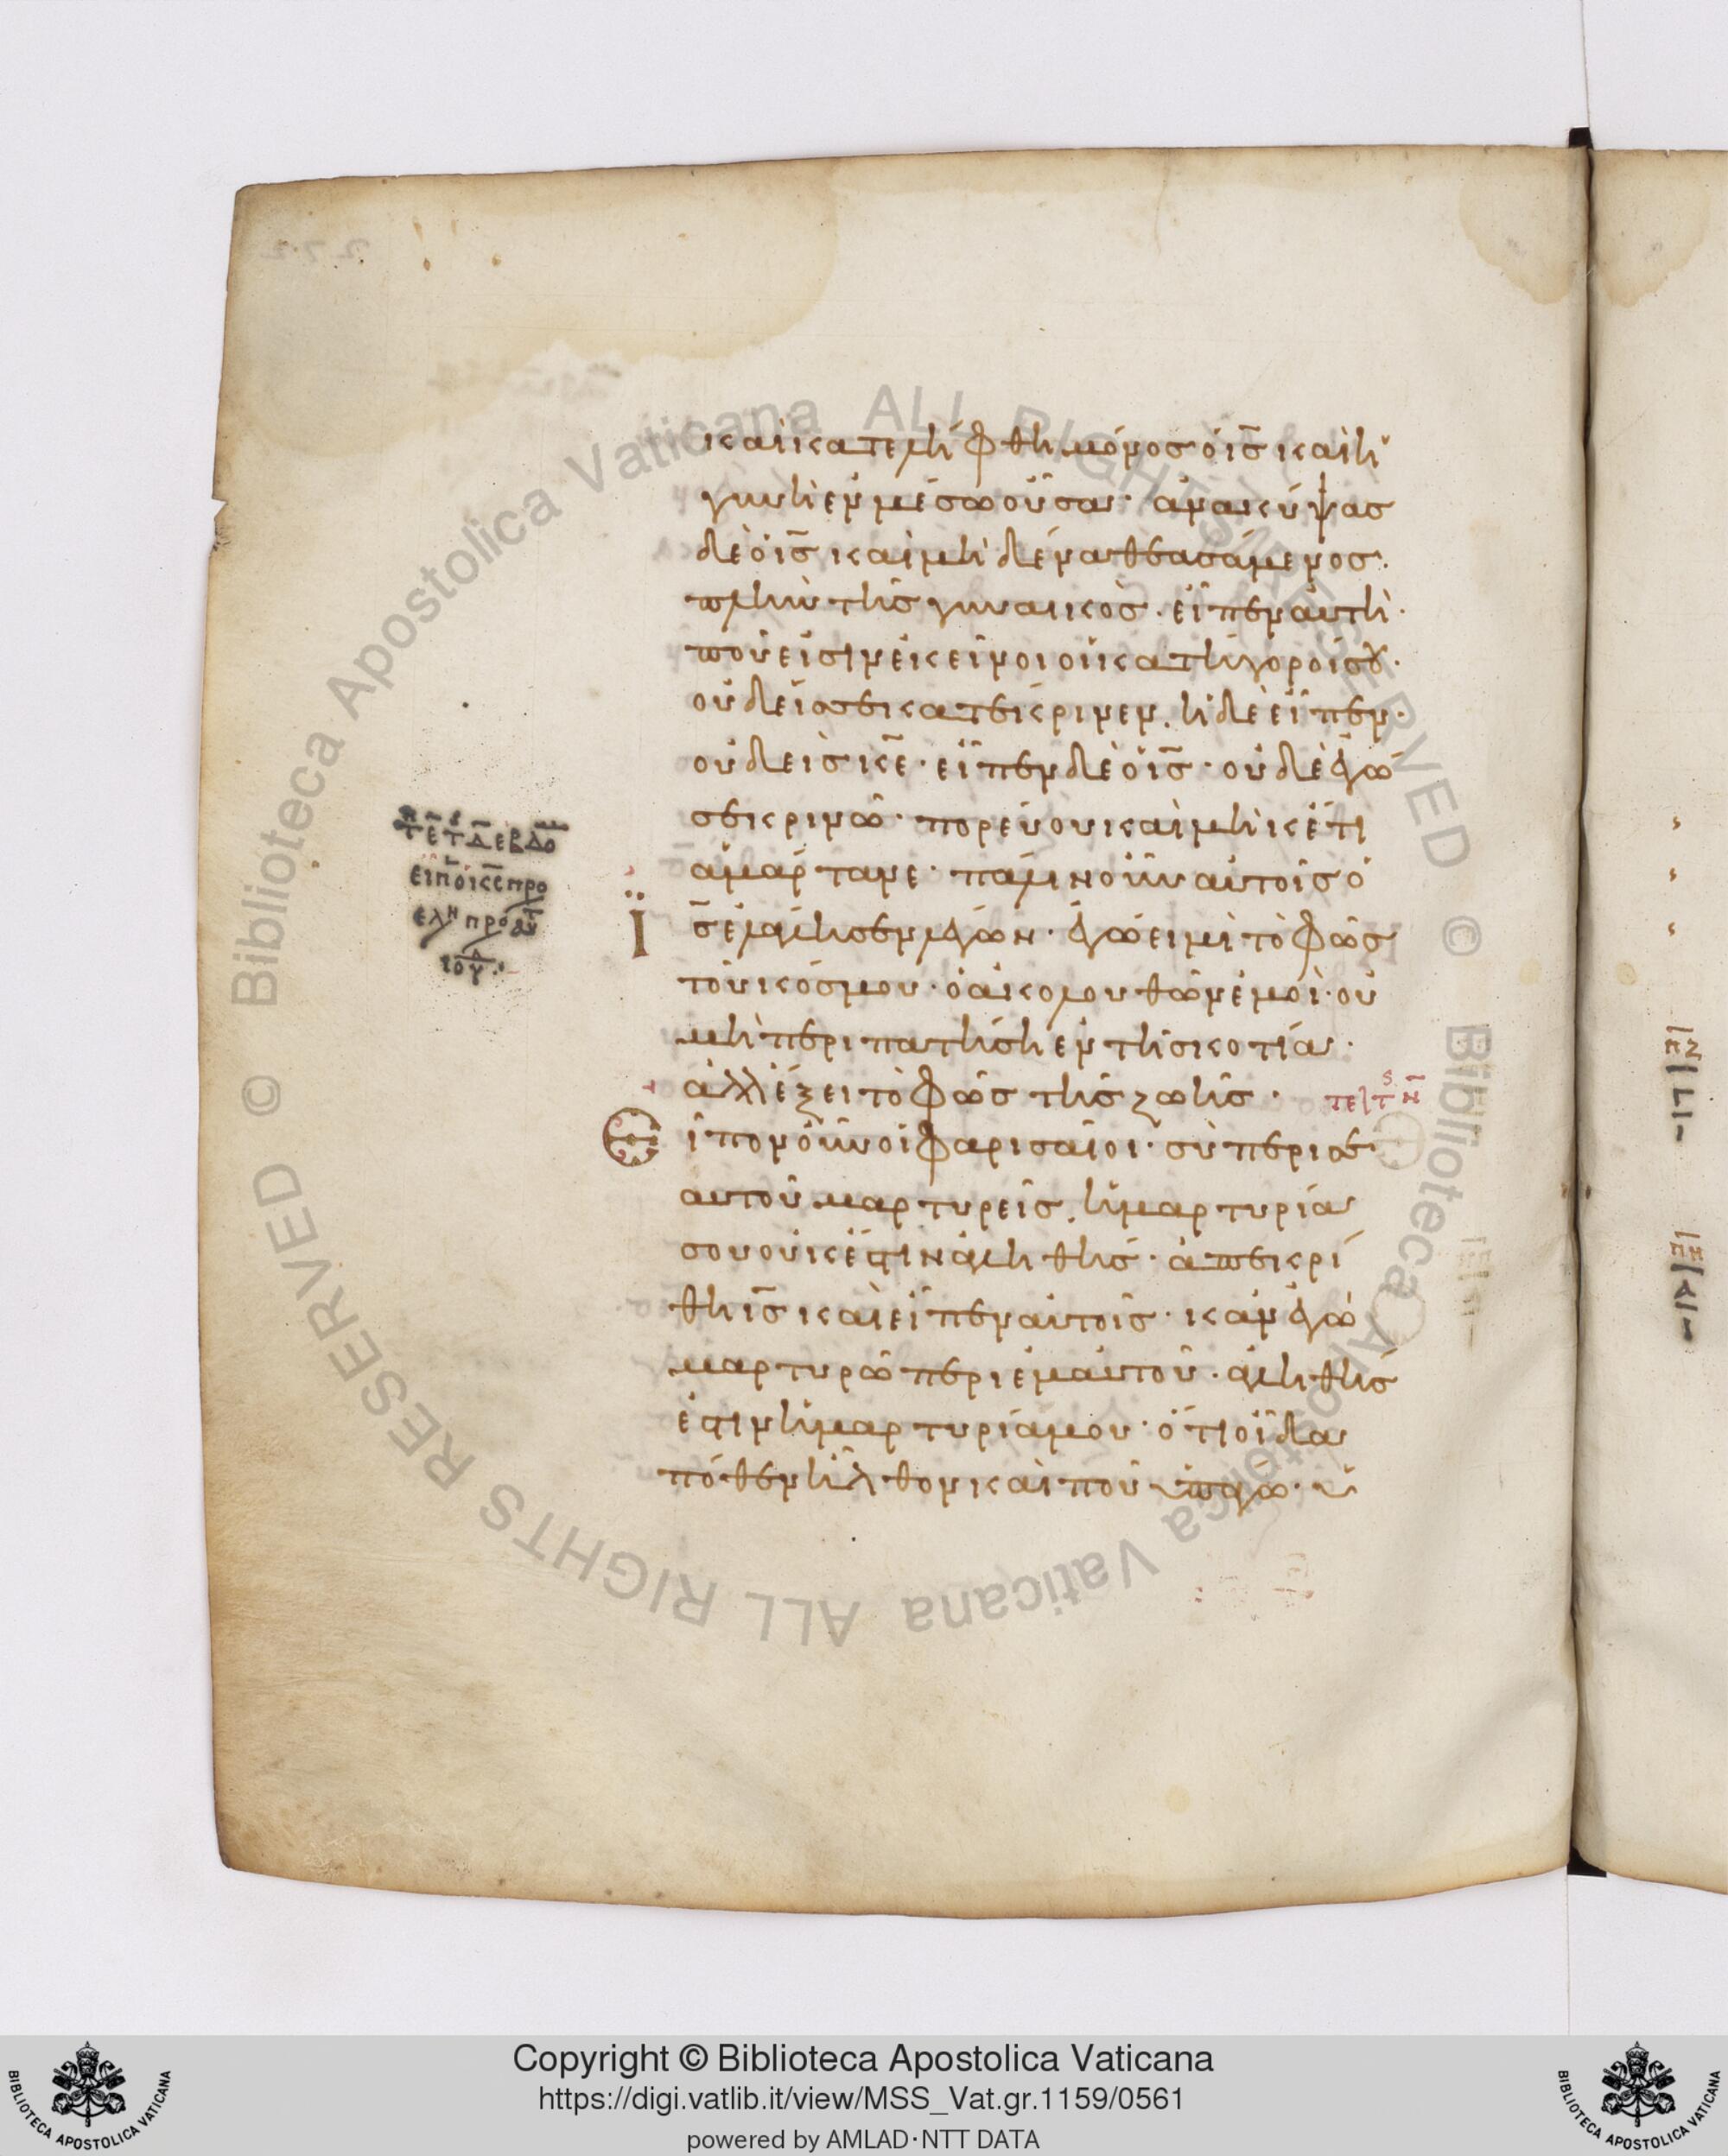 καὶ κατελήφθη μόνος ὁ ι̅ς̅ καὶ ἡ
γυνὴ ἐν μέσω οὖσα· ἀνακύψας
δὲ ὁ ι̅ς̅ καὶ μηδένα θεασάμενος·
πλὴν τῆς γυναικὸς· εἶπεν αὐτῆ·
ποῦ εἰσὶν ἐκεῖνοι οἱ κατήγοροί σου·
οὐδείς σε κατέκρινεν. ἡ δὲ εἶπεν·
οὐδεὶς κ̅ε̅· εἶπεν δὲ ὁ ι̅ς̅· οὐδὲ ἐγώ
σε κρινῶ· πορεύου καὶ μηκέτι
ἁμάρτανε· πάλιν οὖν αὐτοῖς ὁ
Ϊ̈ς̅ ἐλάλησεν λέγων· ἐγώ εἰμι τὸ φῶς
τοῦ κόσμου· ὁ ἀκολουθῶν ἐμοὶ· οὐ
μὴ περιπατήση ἐν τῆ σκοτία·
ἀλλ' ἕξει τὸ φῶς τῆς ζωῆς·
Εἶπον οὖν οἱ φαρισαῖοι· σὺ περὶ σε
αυτοῦ μαρτυρεῖς. ἡ μαρτυρία
σου οὐκ ἔστιν ἀληθής· ἀπεκρί
θη ι̅ς̅ καὶ εἶπεν αὐτοῖς· κἂν ἐγὼ
μαρτυρῶ περὶ ἐμαυτοῦ· ἀληθής
ἐστιν ἡ μαρτυρία μου· ὅτι οἶδα
πόθεν ἦλθον καὶ ποῦ ὑπάγω· ὑ
εἶπ ὁ κ̅ς̅ προ
Biblioteca Apostolica Vaticana ALL RIGHTS RESERVED ©
Biblioteca Apostolica Vaticana ALL RIGHTS RESERVED ©
BIBLIOTECA APOSTOLICA VATICANA
Copyright © Biblioteca Apostolica Vaticana
https://digi.vatlib.it/view/MSS_Vat.gr.1159/0561
powered by AMLAD·NTT DATA
BIBLIOTECA APOSTOLICA VATICANA